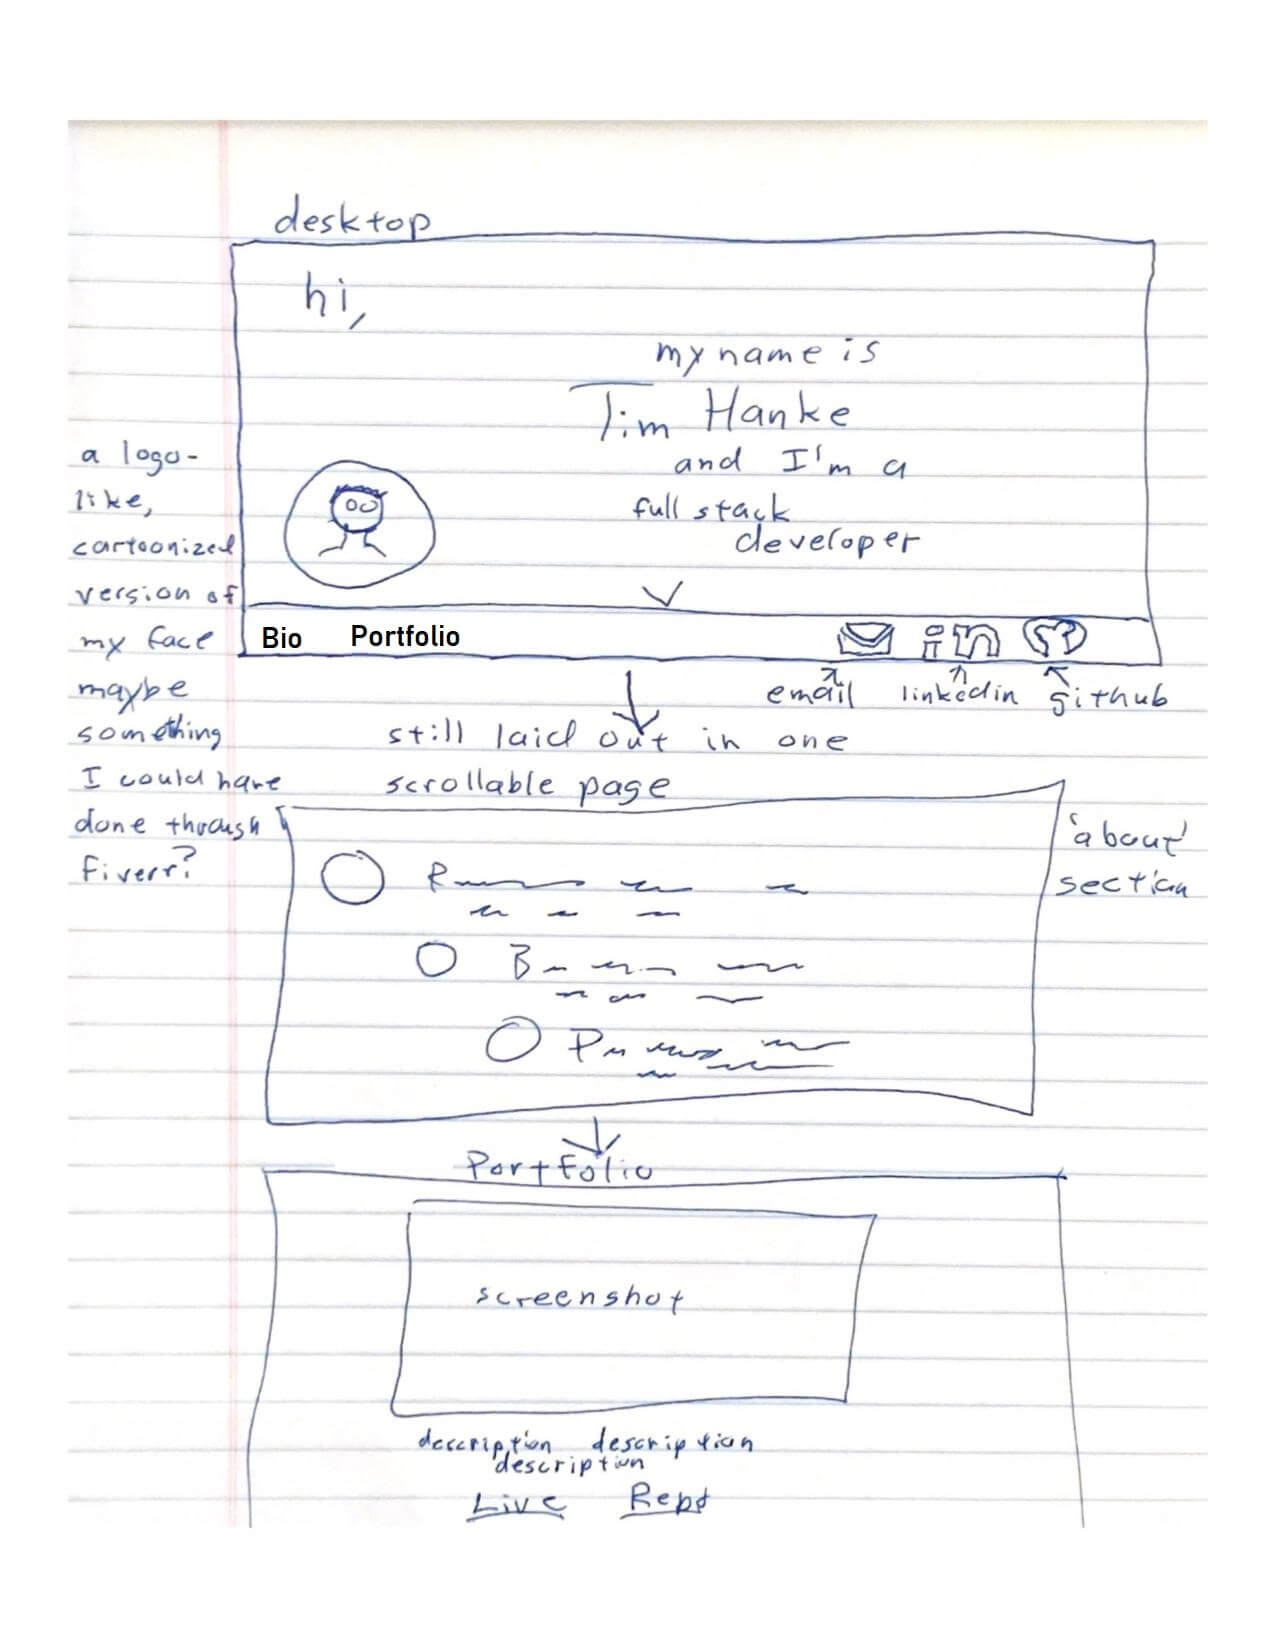 desktop
hi,
my name is
Tim Hanke
and I'm a
full stack
developer
a logo-
like,
cartoonized
version of
my face
maybe
something
I could have
done through
fiverr?
Bio Portfolio
in
email linkedin github
still laid out in one
scrollable page
'about'
section
R
B
P
Portfolio
screenshot
description description
description
Live Repo